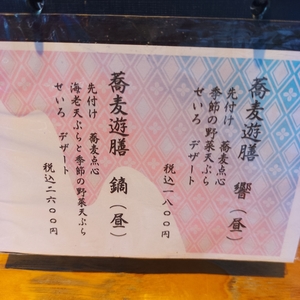 蕎麦遊膳 響（昼）
先付け 蕎麦点心
季節の野菜天ぷら
せいろ デザート
税込一八〇〇円
蕎麦遊膳 鏑（昼）
先付け 蕎麦点心
海老天ぷらと季節の野菜天ぷら
せいろ デザート
税込二六〇〇円